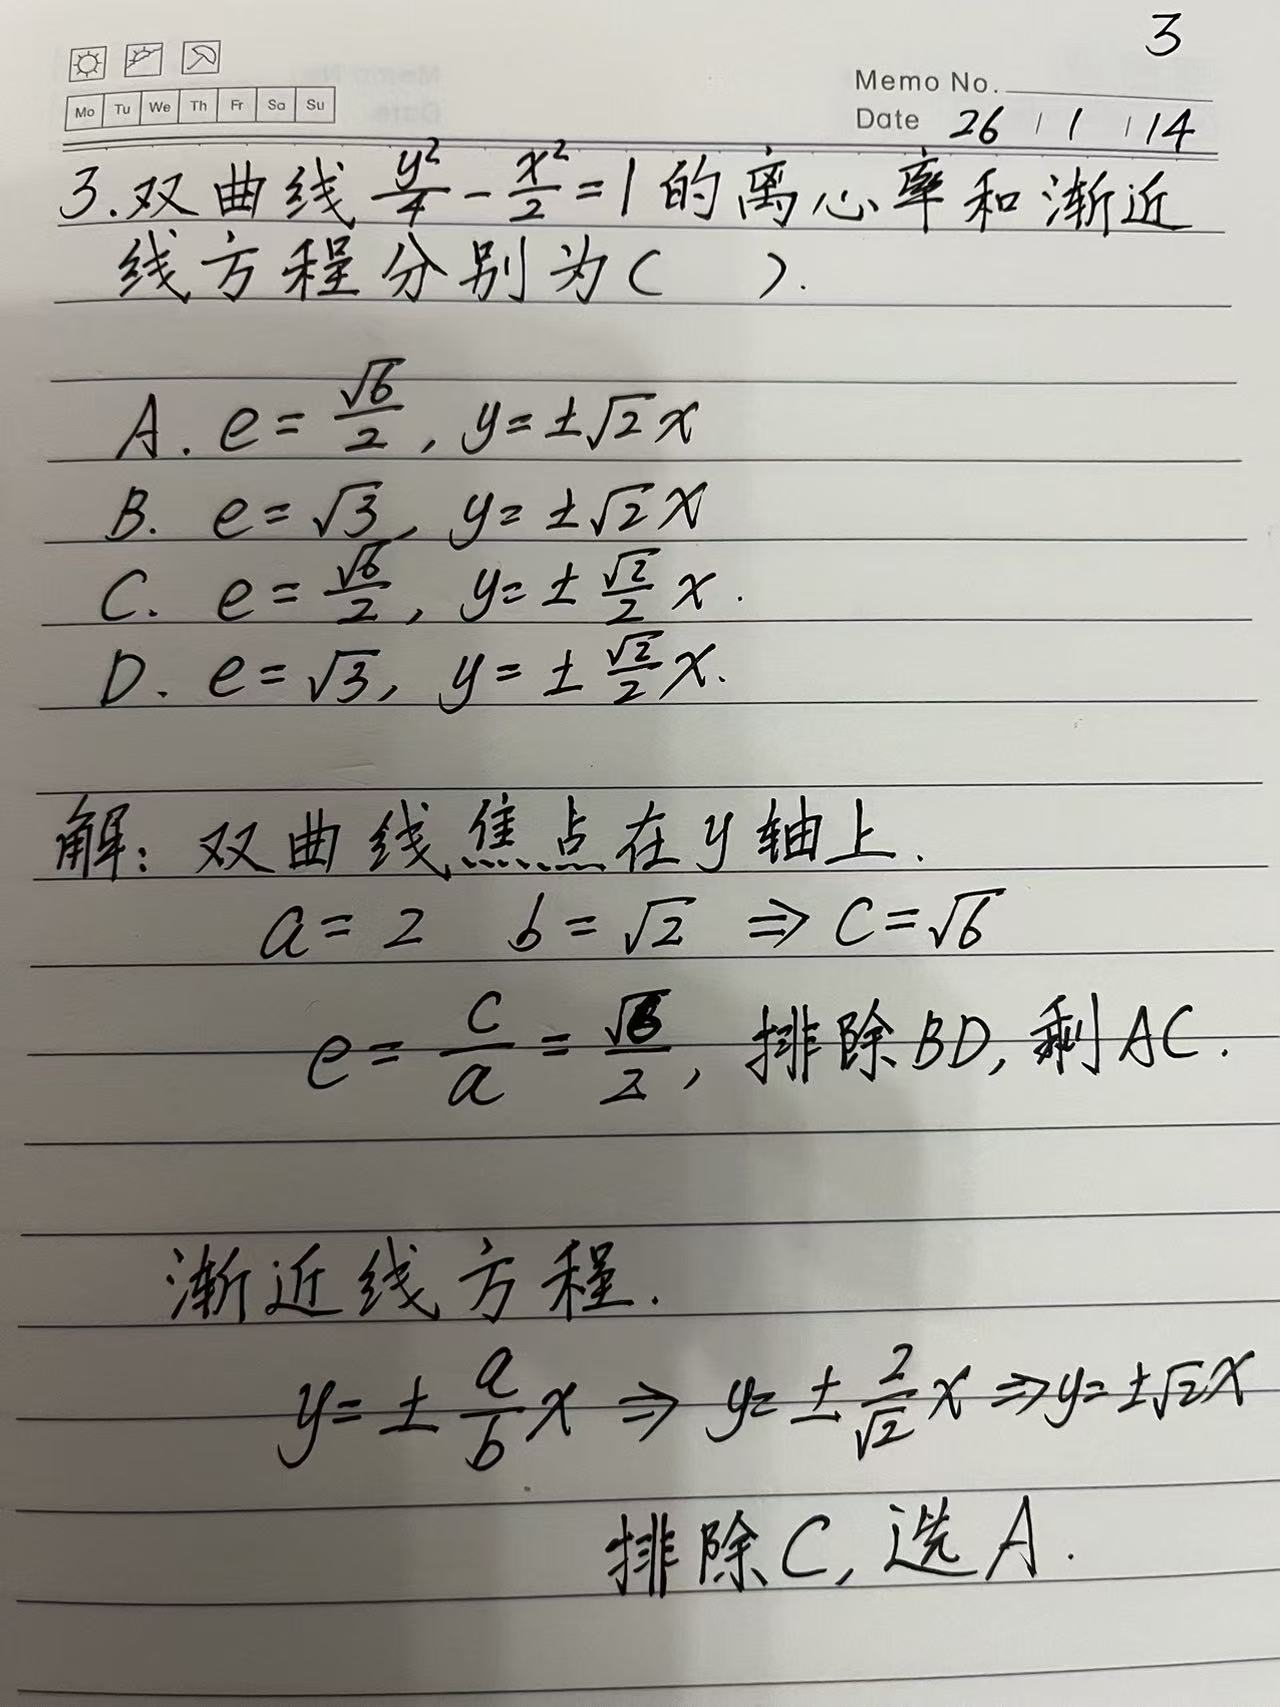 3
Memo No.
Mo Tu We Th Fr Sa Su
Date 26 / 1 / 14
3. 双曲线 y²/4 - x²/2 = 1 的离心率和渐近
线方程分别为( ).
A. e = √6/2, y = ±√2x
B. e = √3, y = ±√2x
C. e = √6/2, y = ± √2/2 x.
D. e = √3, y = ± √2/2 x.
解: 双曲线焦点在y轴上.
a = 2 b = √2 ⇒ c = √6
e = c/a = √6/2, 排除BD, 剩AC.
渐近线方程.
y = ± a/b x ⇒ y = ± 2/√2 x ⇒ y = ±√2x
排除C, 选A.